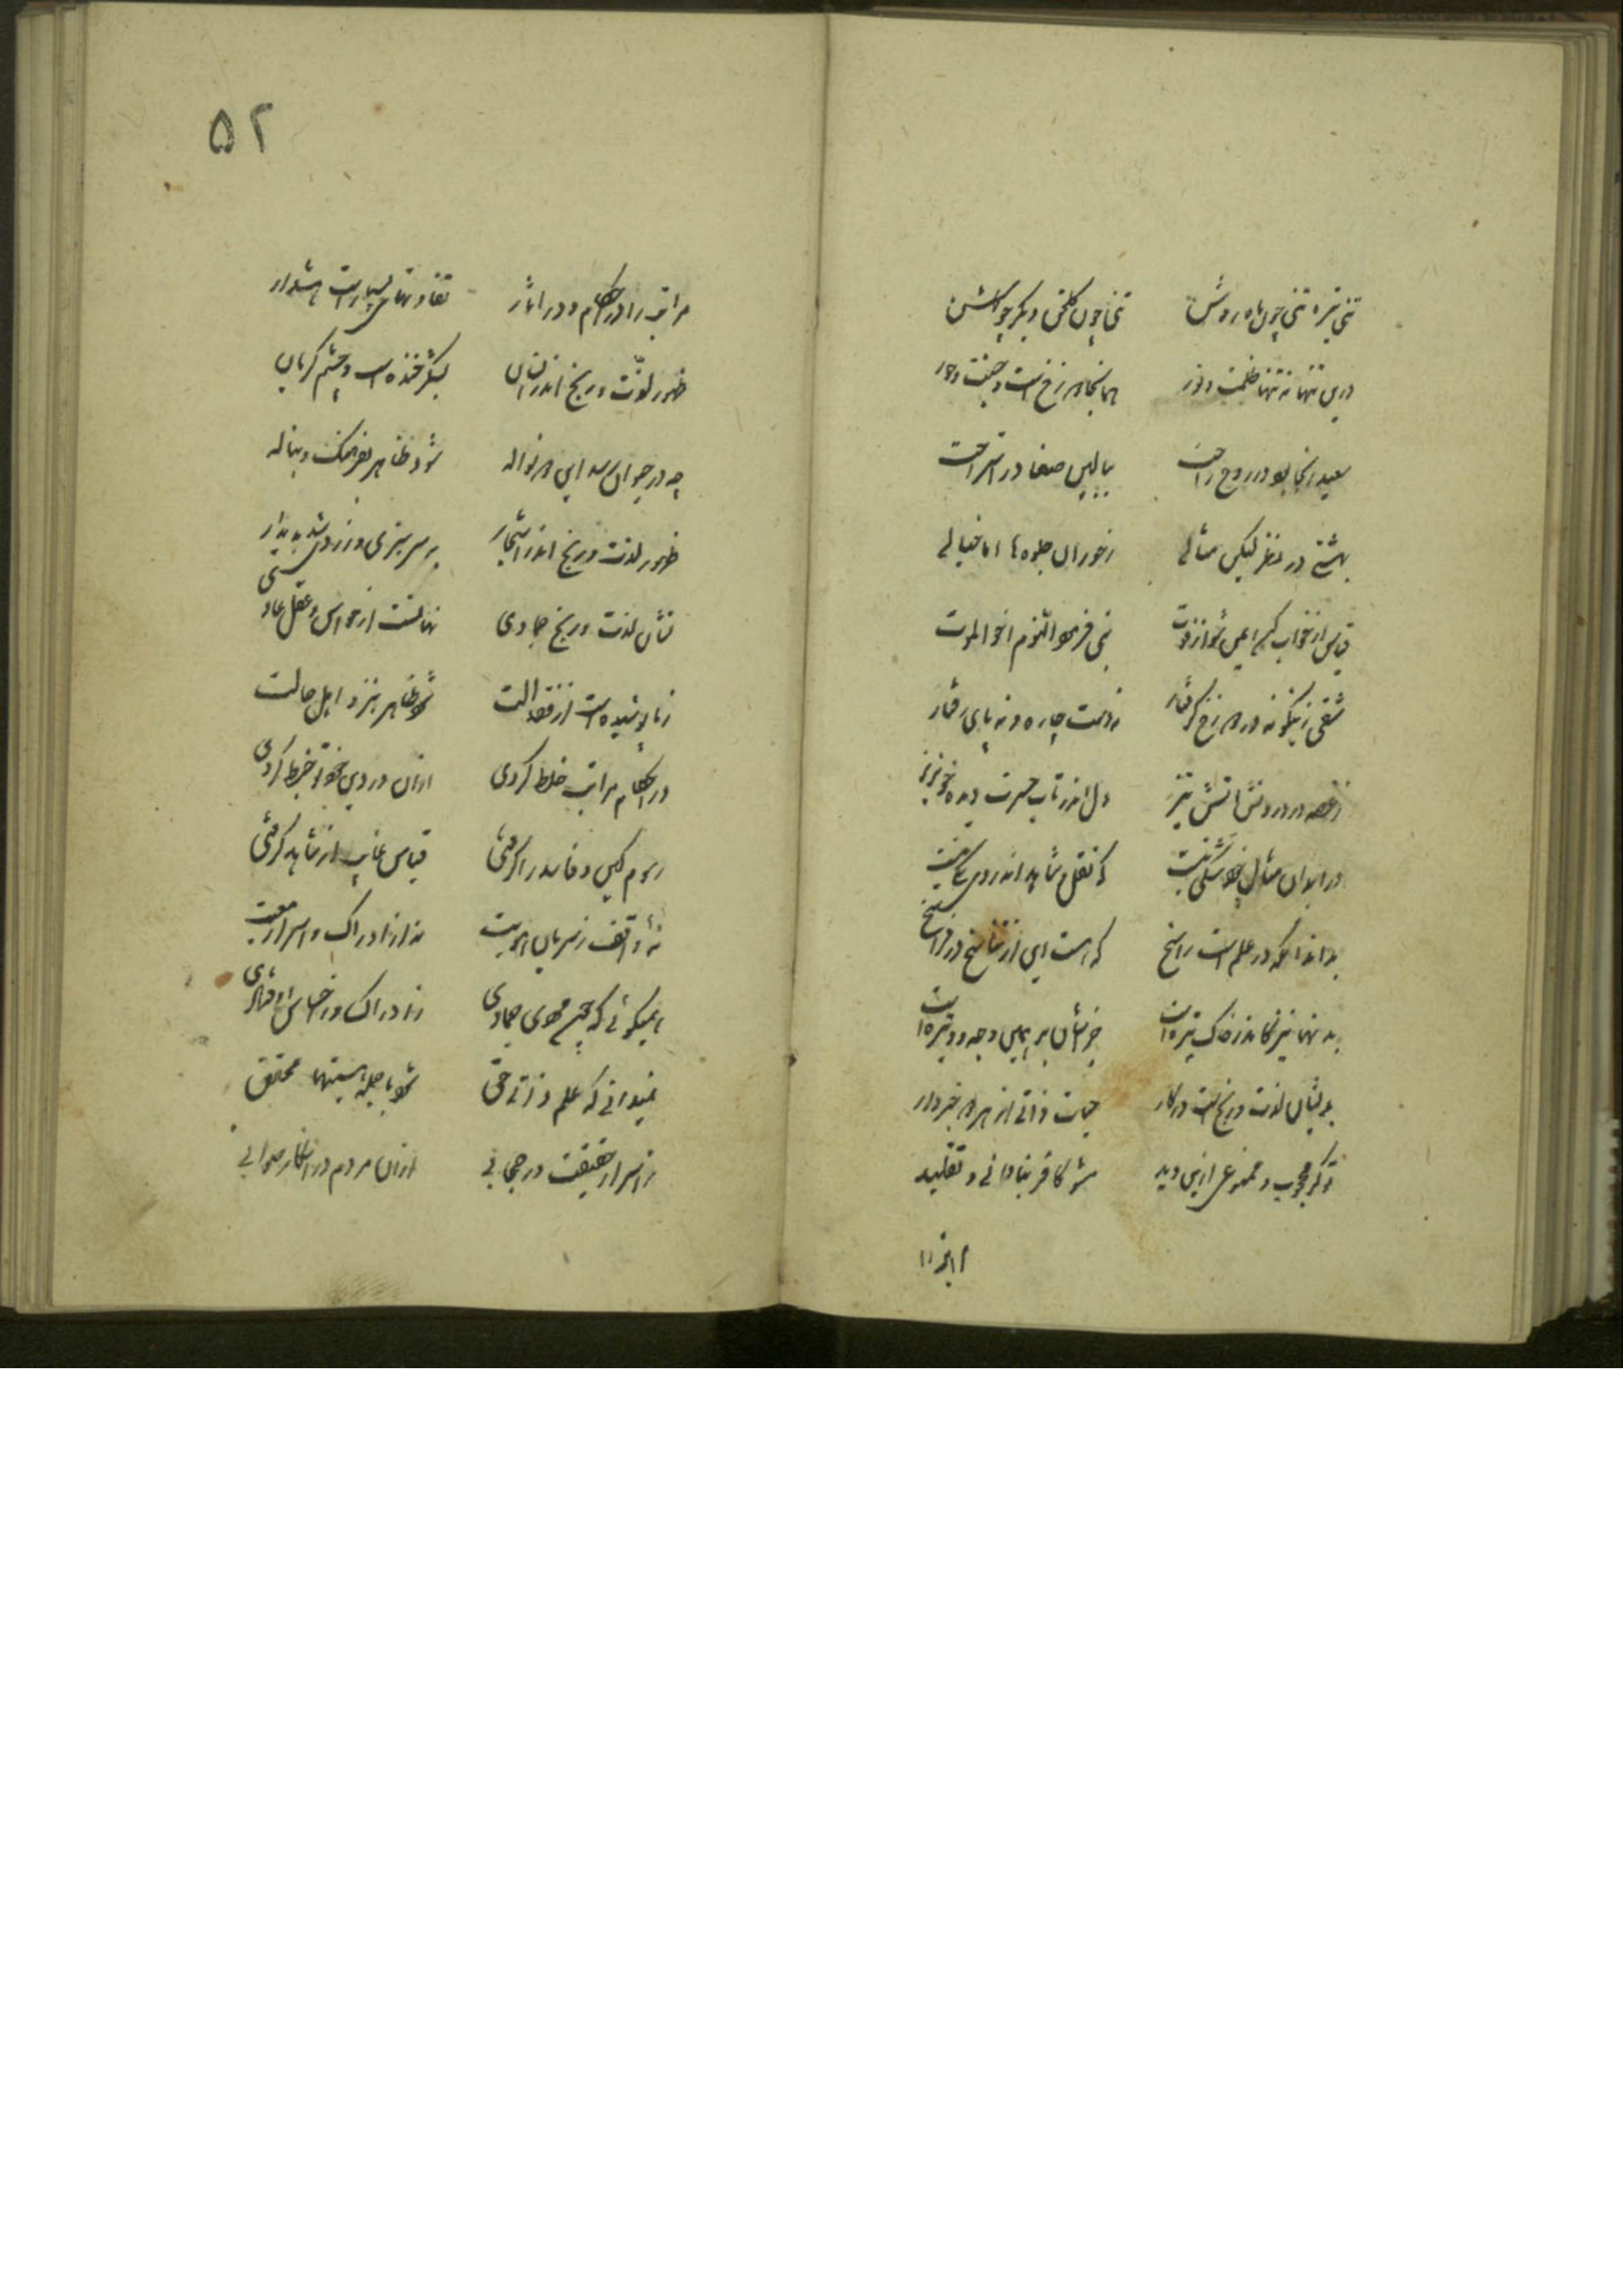 تنی تیره تنی چون ماه روشن تنی چون گلخن و دیگر چو گلشن
درین تنها نه تنها ظلمت و نور همانجا دوزخ است و جنت و حور
سعید اینجا بود در روح راحت ببالین صفا در استراحت
بهشتی در نظر لیکن مثالی ز حوران جلوه‌ها اما خیالی
قیاس از خواب کن این شو از فوت نبی فرمود النوم اخو الموت
شقی زینگونه در دوزخ گرفتار نه دست چاره و نه پای رفتار
ز غصه در درونش آتش تیز دل اندر تاب حسرت دیده خونریز
در ابدان مثال
بداند آنکه در علم است راسخ که هست این از تناسخ در فراسخ
بد تنها نیز کاندر خاک تیره است بر همین وجه و وتیره است
بدیشان لذت و رنج است در کار حیات ذاتی از هر دو خبردار
تو گر محجوب و ممنوعی ازین دید مشو کافر بنادانی و تقلید
۵۲
مراتب را در احکام و در آثار تفاوتهای بسیار است هشدار
ظهور لذت و رنج اندر انسان بشکر خنده است و چشم گریان
چه در حیوان رسد این هر نواله شود ظاهر و بناله
ظهور لذت و رنج اندر اشجار بسرسبزی و زردی شد پدیدار
نشان لذت و رنج جمادی نهانست از حواس و عقل عادی
ز ما پوشیده است از فقد آلت شود ظاهر بنزد اهل حالت
در احکام مراتب خلط کردی ازان در دین خود تو خبط کردی
رسوم کین و فاسد را گرفتی قیاس غایب از شاهد گرفتی
نه واقف ز سریان هویت نه از ادراک و اسرار معیت
همیگوئی که جسم مهوی جمادی ز ادراک و ز احساس اوفتادی
نمیدانی که علم ذاتی حق شود با جمله هستیها محقق
ز اسرار حقیقت در حجابی ازان مردم در انکار صوابی